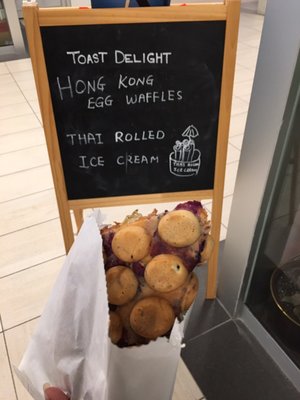 TOAST DELIGHT
HONG KONG
EGG WAFFLES
THAI ROLLED
ICE CREAM
THAI ROLLED
ICE CREAM